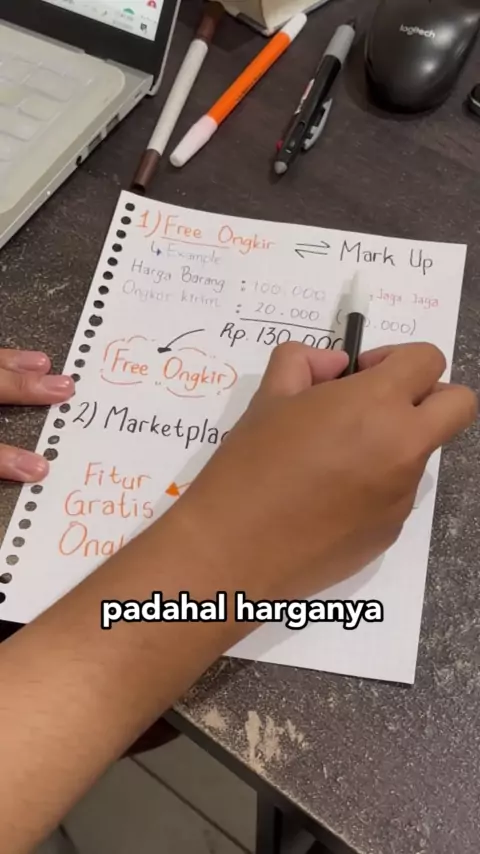 logitech
1) Free Ongkir ⇌ Mark Up
↳ Example
Harga Barang : 100.000 Jaga Jaga
Ongkos kirim : 20.000 ( 0.000)
Rp. 130.000
Free Ongkir
2) Marketplac
Fitur
Gratis
Ong
padahal harganya